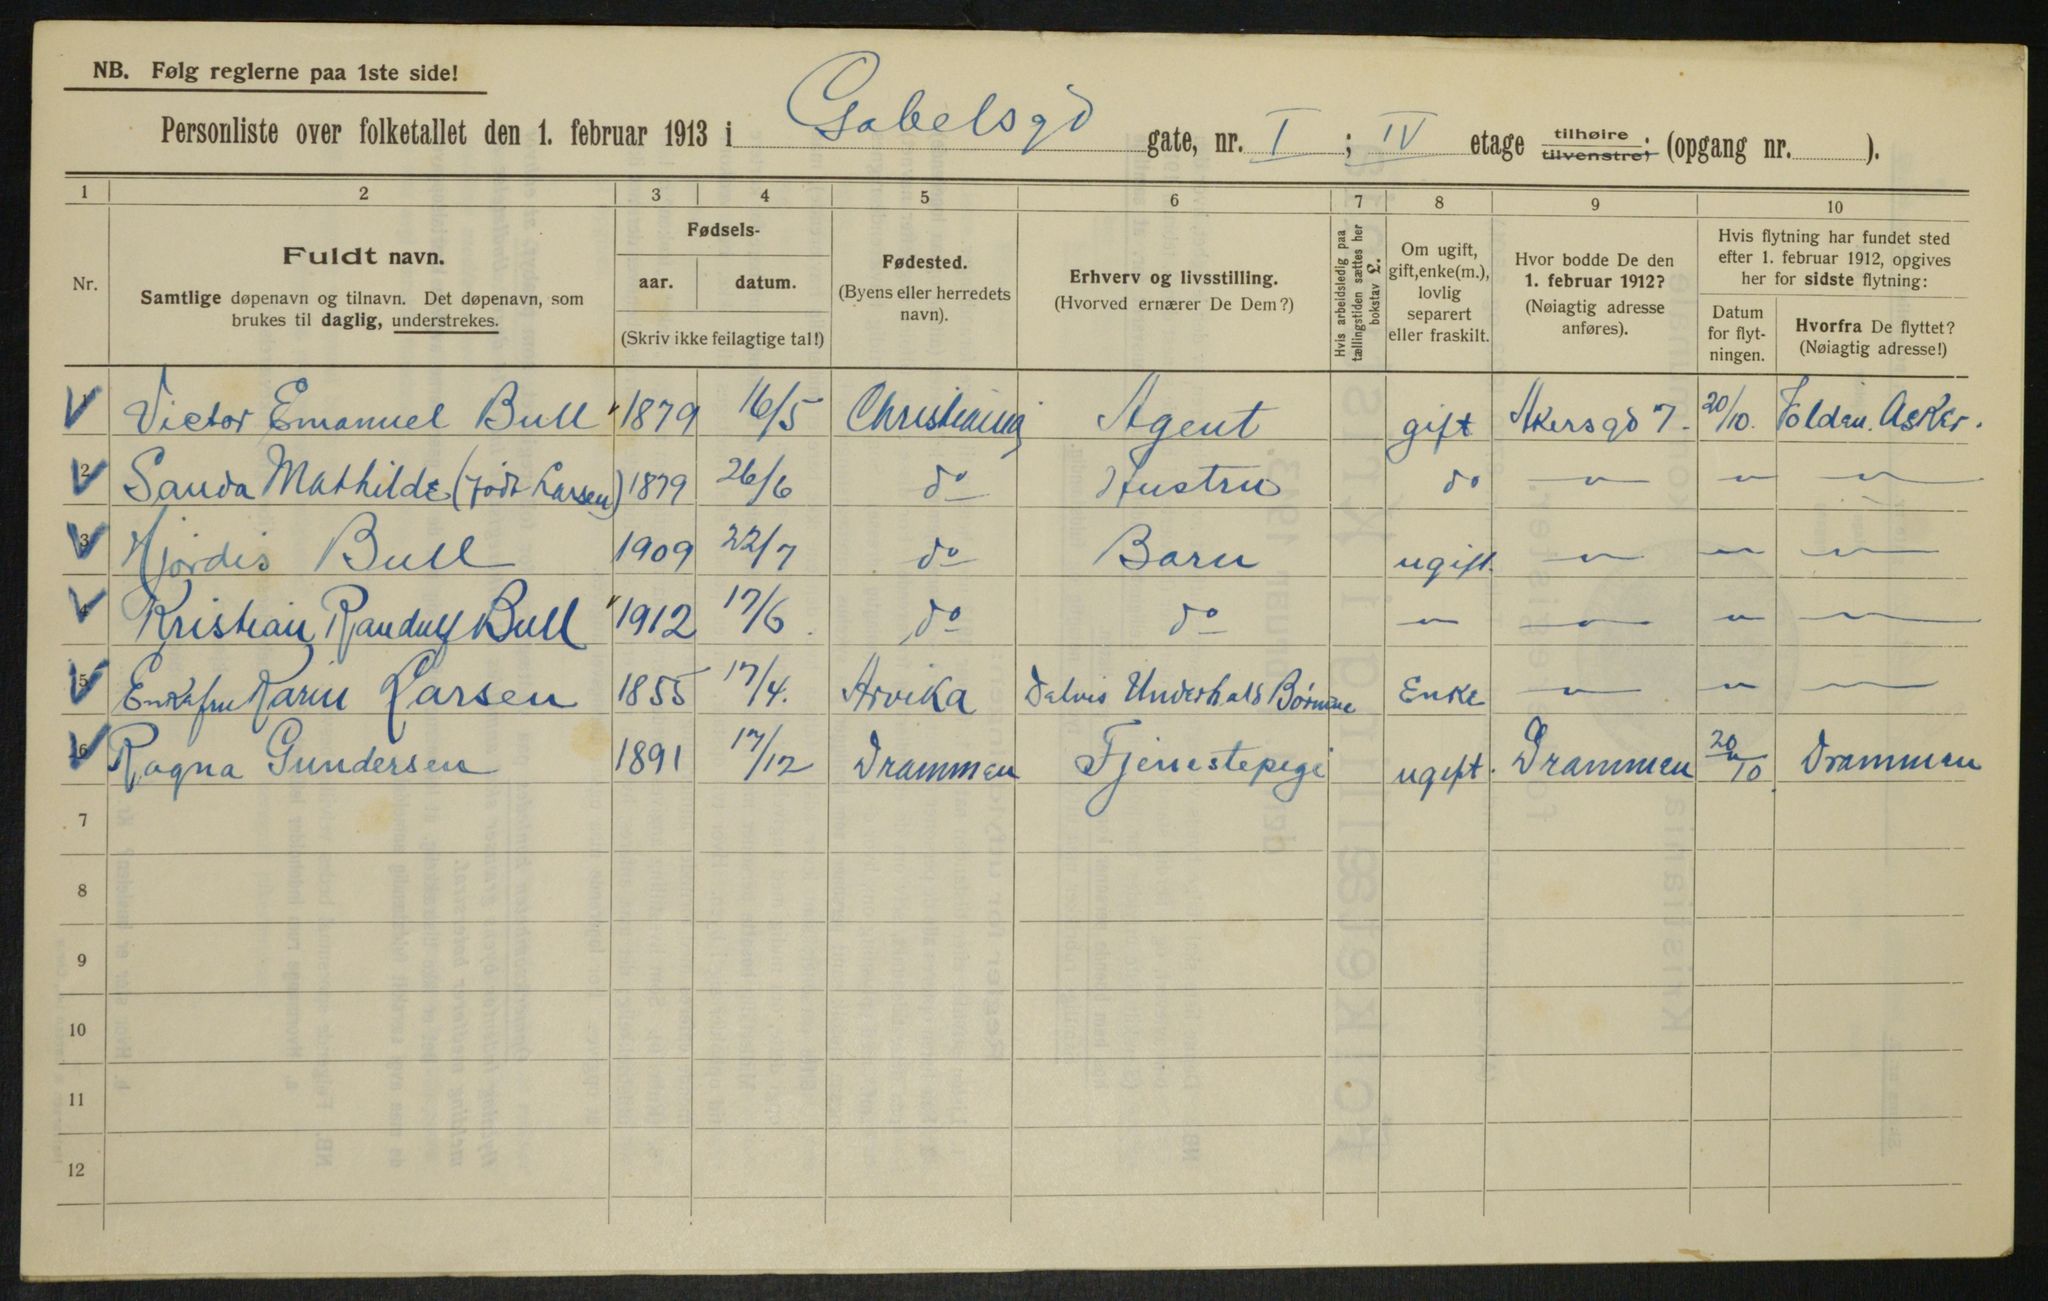 NB. Følg reglerne paa 1ste side!
Personliste over folketallet den 1. februar 1913 i Gabelsgd gate, nr. I ; IV etage tilhøire tilvenstre; (opgang nr. ).
1 2 3 4 5 6 7 8 9 10
Nr.
Fuldt navn.
Samtlige døpenavn og tilnavn. Det døpenavn, som
brukes til daglig, understrekes.
Fødsels-
aar. datum.
(Skriv ikke feilagtige tal!)
Fødested.
(Byens eller herredets
navn).
Erhverv og livsstilling.
(Hvorved ernærer De Dem?)
Hvis arbeidsledig paa
tællingstiden sættes her
bokstav L.
Om ugift,
gift, enke(m.),
lovlig
separert
eller fraskilt.
Hvor bodde De den
1. februar 1912?
(Nøiagtig adresse
anføres).
Hvis flytning har fundet sted
efter 1. februar 1912, opgives
her for sidste flytning:
Datum
for flyt-
ningen.
Hvorfra De flyttet?
(Nøiagtig adresse!)
1 Victor Emanuel Bull 1879 16/5 Christiania Agent gift Akersgd 7. 20/10. Volden. Asker.
2 Mathilde (født Larsen) 1879 26/6 do Hustru do " " "
3 Hjørdis Bull 1909 22/7 do Barn ugift. " " "
4 Kristian Randulf Bull 1912 17/6 do do " " " "
5 Enkefru Karin Larsen 1855 17/4. Arvika Delvis Underhold Børnene Enke " " "
6 Ragna Gundersen 1891 17/12 Drammen Tjenestepige ugift. Drammen 20/10 Drammen
7
8
9
10
11
12